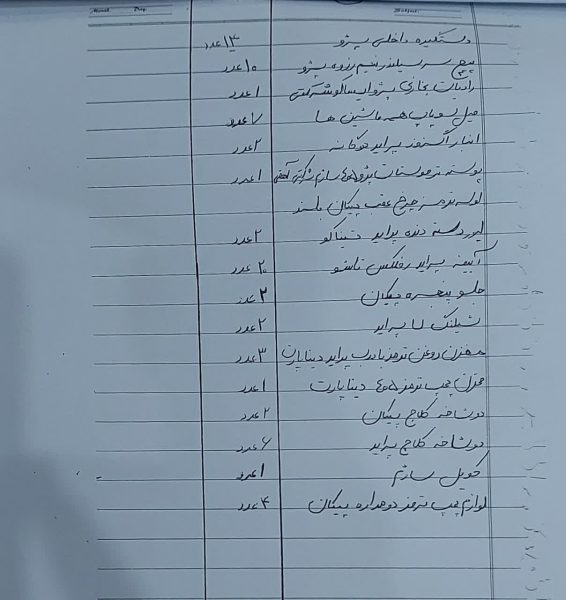 Subject:
دستگیره داخلی پژو ۱۳ عدد
پیچ سرسیلندر نیم رزوه پژو ۱۰ عدد
رادیات بخاری پژو ایساکو شرکتی ۱ عدد
میل سوپاپ همه ماشین ها ۷ عدد
انبار اگزوز پراید دوگانه ۲ عدد
پوسته ترموستات پژو ۴۰۵ سازم شرکتی ۱ عدد
لوله ترمز چرخ عقب پیکان بلند
لیور دسته دنده پراید دیناکو ۲ عدد
آیینه پراید رفلکس تاشو ۲۰ عدد
جلو پنجره پیکان ۲ عدد
شیلنگ U پراید ۲ عدد
مخزن روغن ترمز با درب پراید دیناپارت ۳ عدد
مخزن پمپ ترمز ۴۰۵ دیناپارت ۱ عدد
دوشاخه کلاج پیکان ۲ عدد
دوشاخه کلاج پراید ۶ عدد
کویل سازم ۱ عدد
لوازم پمپ ترمز دو مداره پیکان ۴ عدد